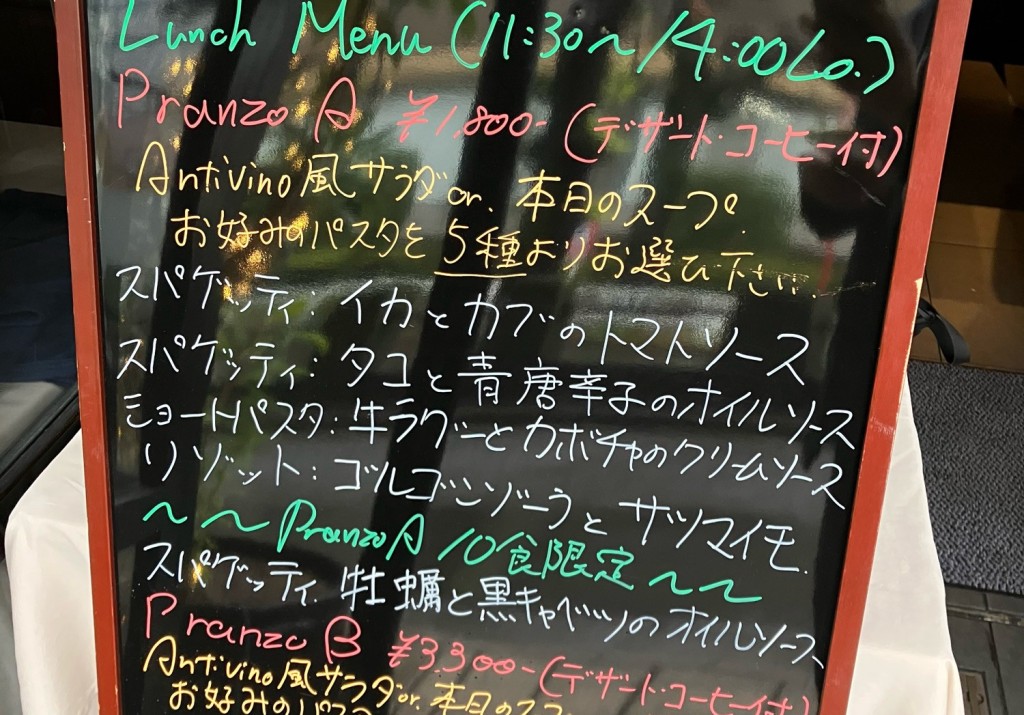 Lunch Menu (11:30〜14:00Lo.)
Pranzo A ¥1,800- (デザート・コーヒー付)
Antivino風サラダor. 本日のスープ.
お好みのパスタを5種よりお選び下さい
スパゲッティ: イカとカブのトマトソース
スパゲッティ: タコと青唐辛子のオイルソース
ショートパスタ: 牛ラグーとカボチャのクリームソース
リゾット: ゴルゴンゾーラとサツマイモ.
〜〜PranzoA 10食限定〜〜
スパゲッティ. 牡蠣と黒キャベツのオイルソース
Pranzo B ¥3,300-(デザート・コーヒー付)
Antivino風サラダor. 本日のスープ
お好みのパスタ